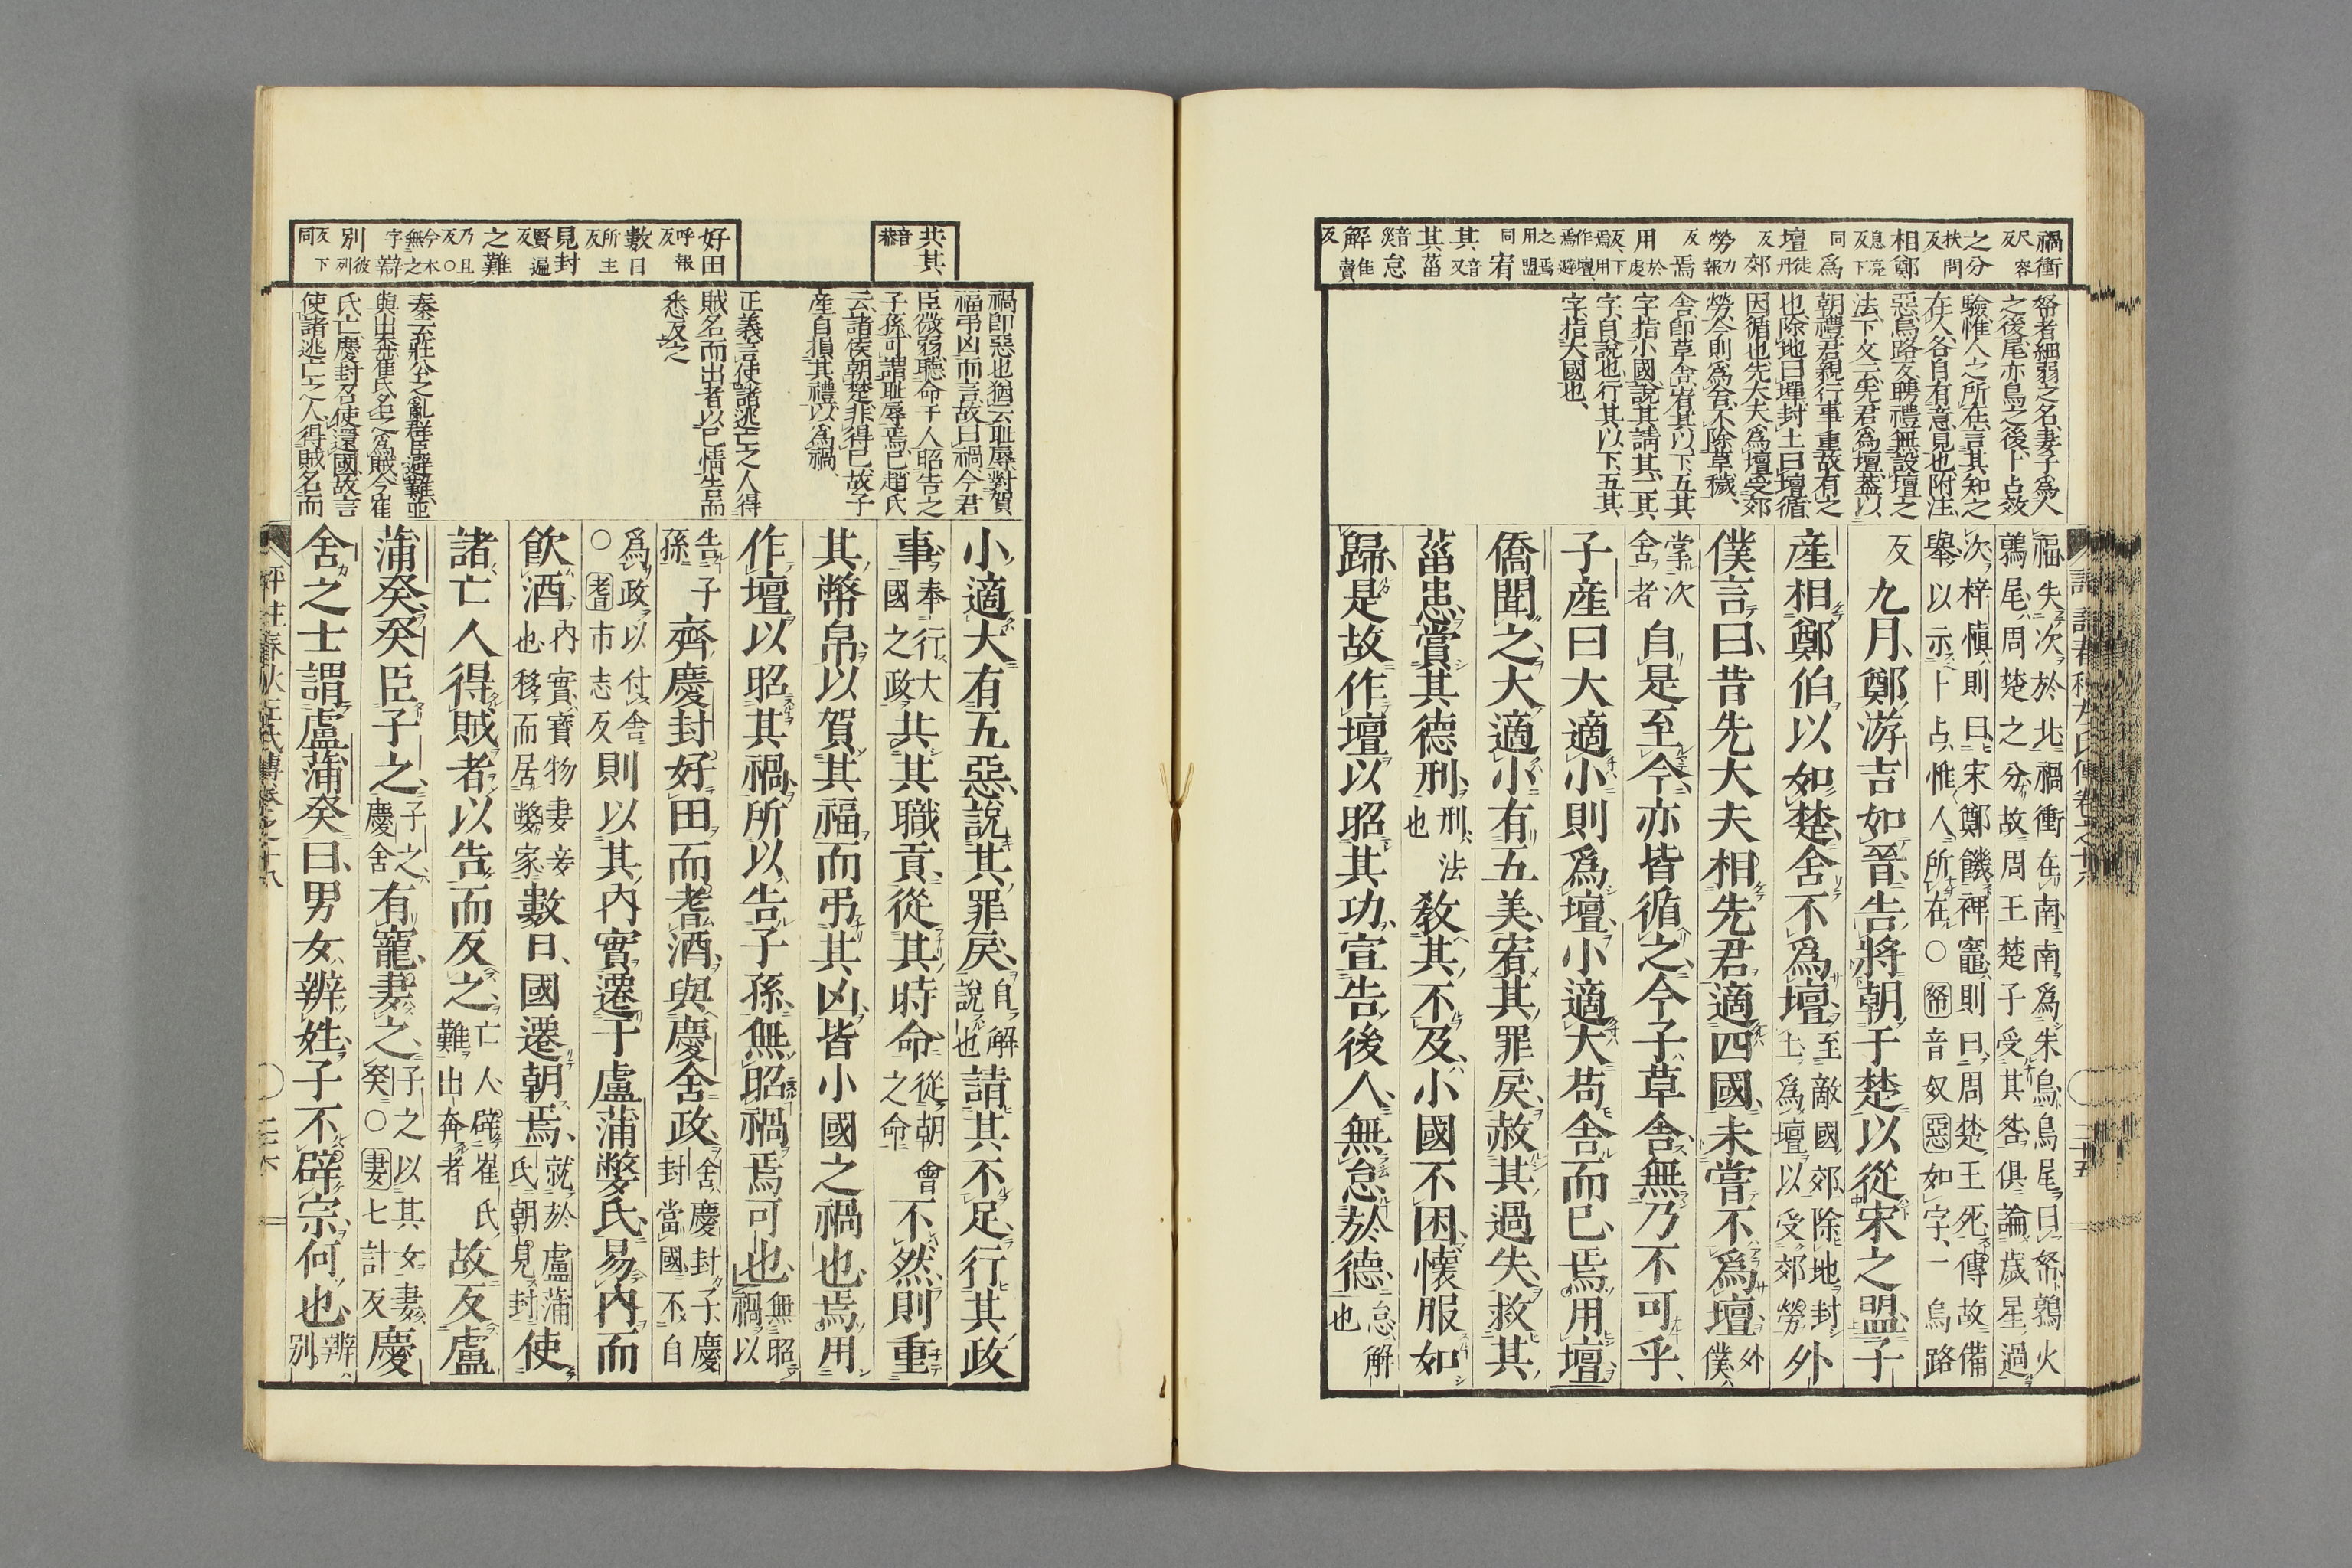 禍衝尺容反
之分扶問反
相鄭息亮反下同
爲壇徒丹反
郊勞力報反
焉用於虔反下焉用作壇焉避之焉用盟同
宥其音又
其菑音災
怠解佳賣反
帑者細弱之名妻子爲人
之後尾亦鳥之後卜占效
驗惟人之所在言其知之
在人各自有意見也附注
惡烏路反聘禮無設壇之
法下文云先君爲壇蓋以
朝禮君親行事重故有之
也除地曰墠封土曰壇循
因循也先大夫爲壇受郊
勞今則爲舍不除草穢
舍即草舍宥其以下五其
字指小國說其請其二其
字自說也行其以下五其
字指大國也
福失次於北禍衝在南南爲朱鳥鳥尾曰帑鶉火
鶉尾周楚之分故周王楚子受其咎俱論歲星過
次梓愼則曰宋鄭饑裨竈則曰周楚王死傳故備
舉以示卜占惟人所在○帑音奴惡如字一烏路
反九月鄭游吉如晉告將朝于楚以從宋之盟子
產相鄭伯以如楚舍不爲壇至敵國郊除地封土爲壇以受郊勞外
僕言曰昔先大夫相先君適四國未嘗不爲壇外僕
掌次舍者自是至今亦皆循之今子草舍無乃不可乎
子產曰大適小則爲壇小適大苟舍而已焉用壇
僑聞之大適小有五美宥其罪戾赦其過失救其
菑患賞其德刑刑法也敎其不及小國不困懷服如
歸是故作壇以昭其功宣告後人無怠於德怠解也
共其音恭
好田呼報反
數日所主反
見封賢遍反
之難乃且反○今本無之字
辯別彼列反下同
禍即惡也猶云耻辱對賀
福弔凶而言故曰禍今君
臣微弱聽命于人昭告之
子孫可謂耻辱焉已趙氏
云諸侯朝楚非得已故子
產自損其禮以爲禍
正義言使諸逃亡之人得
賊名而出者以已情告而
悉反之
秦云莊公之亂群臣避難並
與出奔崔氏名之爲賊今崔
氏亡慶封召使還國故言
使諸逃亡之人得賊名而
小適大有五惡說其罪戾自解說也請其不足行其政
事奉行大國之政共其職貢從其時命從朝會之命不然則重
其幣帛以賀其福而弔其凶皆小國之禍也焉用
作壇以昭其禍所以告子孫無昭禍焉可也無昭禍以
告子孫齊慶封好田而耆酒與慶舍政舍慶封子慶封當國不自
爲政以付舍○耆市志反則以其內實遷于盧蒲嫳氏易內而
飮酒內實寶物妻妾也移而居嫳家數日國遷朝焉就於盧蒲氏朝見封使
諸亡人得賊者以告而反之亡人辟崔氏難出奔者故反盧
蒲癸癸臣子之子之慶舍有寵妻之子之以其女妻癸○妻七計反慶
舍之士謂盧蒲癸曰男女辨姓子不辟宗何也辨別